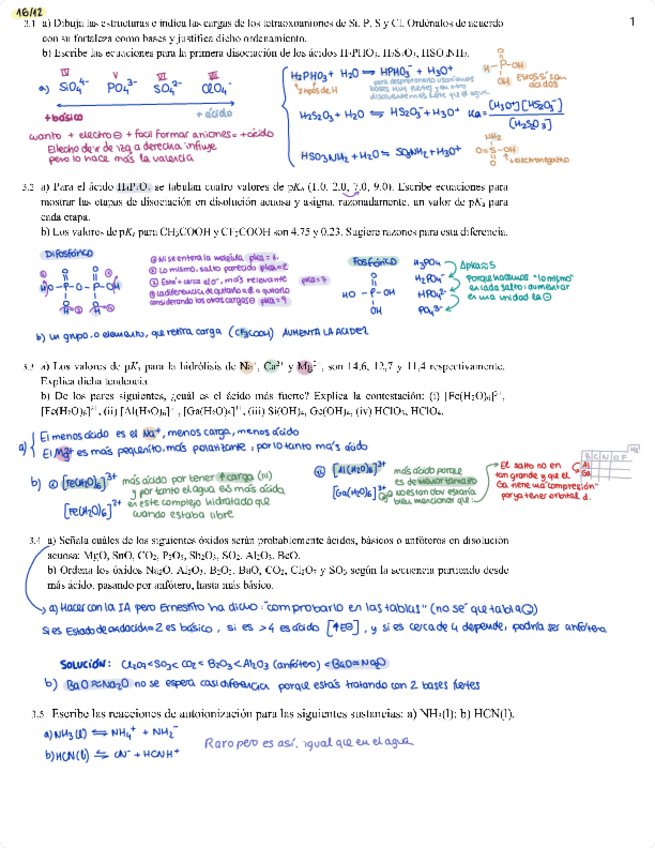 16/12
1
3.1 a) Dibuja las estructuras e indica las cargas de los tetraoxoaniones de Si, P, S y Cl. Ordénalos de acuerdo
con su fortaleza como bases y justifica dicho ordenamiento.
b) Escribe las ecuaciones para la primera disociación de los ácidos H₃PHO₃, H₂S₂O₃, HSO₃NH₂.
a) SiO₄⁴⁻ PO₄³⁻ SO₄²⁻ ClO₄⁻
+básico
+ácido
cuanto + electro⊖ + facil formar aniones = +ácido
El echo de ir de izq a derecha influye
pero lo hace más la valencia
H₂PHO₃ + H₂O ⇌ HPHO₃⁻ + H₃O⁺
H₂S₂O₃ + H₂O ⇌ HS₂O₃⁻ + H₃O⁺
HSO₃NH₂ + H₂O ⇌ SO₃NH₂⁻ + H₃O⁺
Estos sí son
ácidos
+electronegativo
3.2 a) Para el ácido H₄P₂O₇ se tabulan cuatro valores de pKₐ (1.0, 2.0, 7.0, 9.0). Escribe ecuaciones para
mostrar las etapas de disociación en disolución acuosa y asigna, razonadamente, un valor de pKₐ para
cada etapa.
b) Los valores de pKₐ para CH₃COOH y CF₃COOH son 4.75 y 0.23. Sugiere razones para esta diferencia.
Difosfórico
① Ni se entera la molécula, pka=1.
② Lo mismo, salto parecido pka=2
pka=7
considerando las otras cargas⊖ pka=9
Fosfórico
H₃PO₄
H₂PO₄⁻
HPO₄²⁻
PO₄³⁻
Δpka≈5
porque hacemos "lo mismo"
en cada salto: aumentar
en una unidad la ⊖
b) un grupo, o elemento, que retira carga (CF₃COOH) AUMENTA LA ACIDEZ
3.3 a) Los valores de pKₐ para la hidrólisis de Na⁺, Ca²⁺ y Mg²⁺, son 14,6, 12,7 y 11,4 respectivamente.
Explica dicha tendencia.
b) De los pares siguientes, ¿cuál es el ácido más fuerte? Explica la contestación: (i) [Fe(H₂O)₆]³⁺,
[Fe(H₂O)₆]²⁺, (ii) [Al(H₂O)₆]³⁺, [Ga(H₂O)₆]³⁺, (iii) Si(OH)₄, Ge(OH)₄, (iv) HClO₃, HClO₄.
a) El menos ácido es el Na⁺, menos carga, menos ácido
El Mg²⁺ es más pequeñito, más polarizante, por lo tanto más ácido
b) ① [Fe(H₂O)₆]³⁺ más ácido por tener ↑carga (IV)
y por tanto el agua es más ácida
[Fe(H₂O)₆]²⁺ en este complejo hidratado que
cuando estaba libre
② [Al(H₂O)₆]³⁺ más ácido porque
es de menor tamaño
[Ga(H₂O)₆]³⁺
El salto no es
tan grande y que el
Ga tiene una "compresión"
por ya tener orbital d.
B C N O F
Al
Ga
3.4 a) Señala cuáles de los siguientes óxidos serán probablemente ácidos, básicos o anfóteros en disolución
acuosa: MgO, SnO, CO₂, P₂O₅, Sb₂O₃, SO₂, Al₂O₃, BeO.
b) Ordena los óxidos Na₂O, Al₂O₃, B₂O₃, BaO, CO₂, Cl₂O₇ y SO₃ según la secuencia partiendo desde
más ácido, pasando por anfótero, hasta más básico.
a) Hacer con la IA pero Ernestito ha dicho: "comprobarlo en las tablas" (no sé que tabla☹)
Si es Estado de oxidación=2 es básico, si es >4 es ácido [↑EO], y si es cerca de 4 depende, podría ser anfótero
SOLUCIÓN: Cl₂O₇<SO₃<CO₂<B₂O₃<Al₂O₃ (anfótero) <BaO≈Na₂O
b) BaO≈Na₂O no se espera casi diferencia porque estás tratando con 2 bases fuertes
3.5 Escribe las reacciones de autoionización para las siguientes sustancias: a) NH₃(l); b) HCN(l).
a) NH₃(l) ⇌ NH₄⁺ + NH₂⁻
b) HCN(l) ⇌ CN⁻ + HCNH⁺
Raro pero es así, igual que en el agua